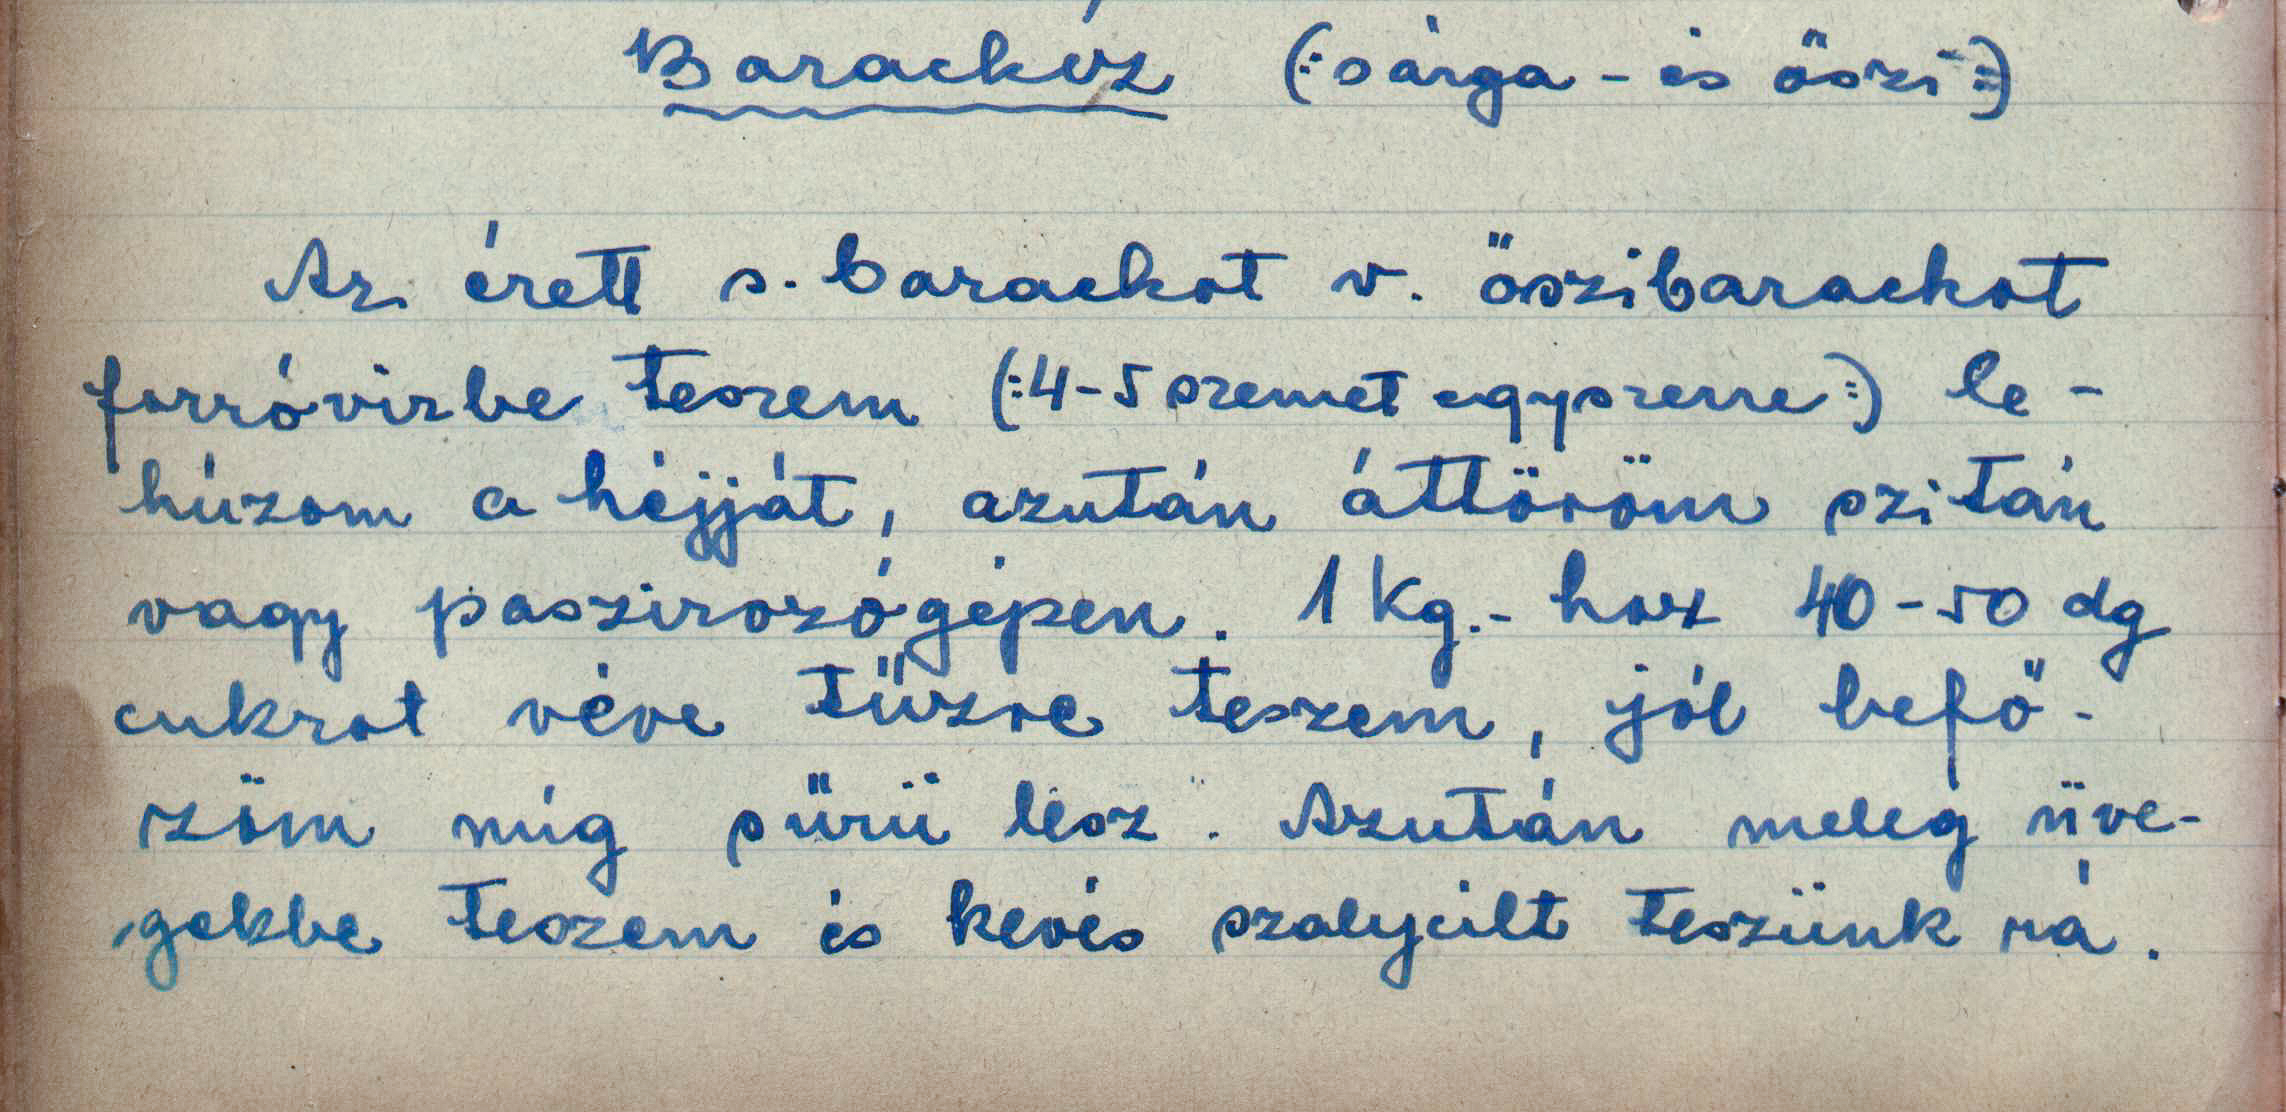 Barackíz (: sárga - és őszi :)
Az érett s. barackot v. őszibarackot
forróvízbe teszem (: 4-5 szemet egyszerre :) le-
húzom a héjját, azután áttöröm szitán
vagy paszirozógépen. 1 kg.- hoz 40-50 dg
cukrot véve tűzre teszem, jól befő-
zöm míg sűrü lesz. Azután meleg üve-
gekbe teszem és kevés szalycilt teszünk rá.